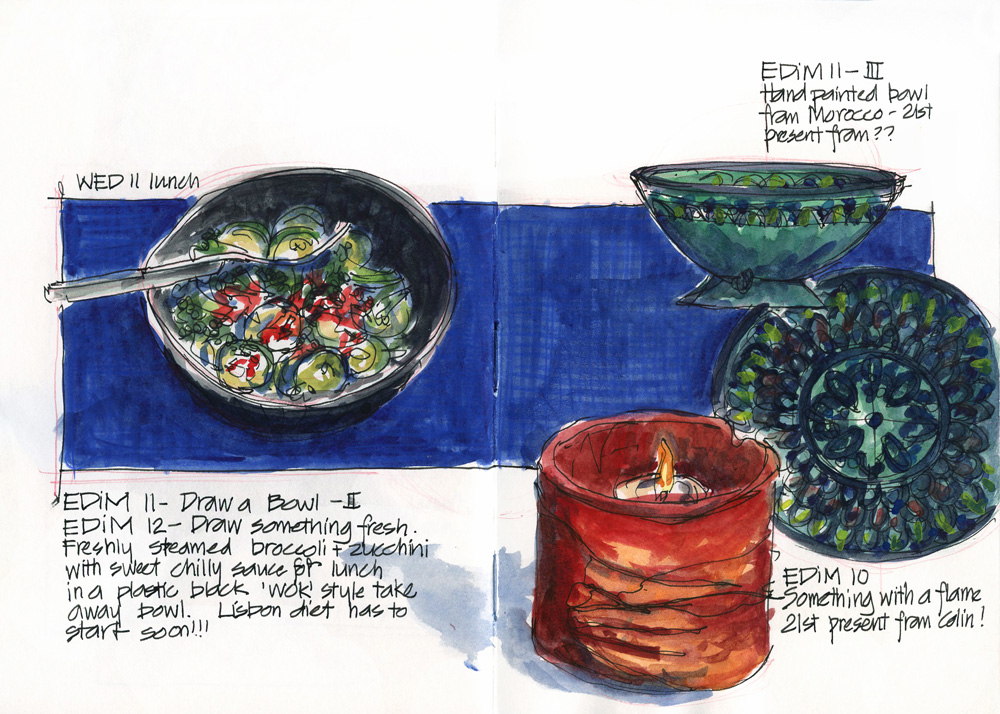 WED 11 lunch
EDiM 11- Draw a Bowl -II
EDiM 12- Draw something fresh.
Freshly steamed broccoli + zucchini
with sweet chilly sauce for lunch
in a plastic black 'wok' style take
away bowl. Lisbon diet has to
start soon!!!
EDiM 11- III
Hand painted bowl
from Morocco - 21st
present from??
EDiM 10
Something with a flame
21st present from Colin!